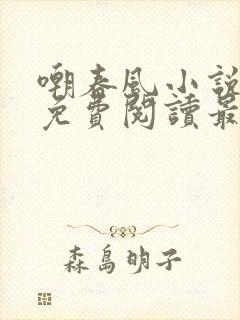 嘲春風小說
免費閱讀最
森島明子